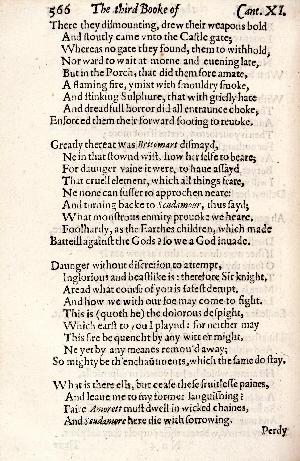 566 The third Booke of Cant. XI.
There they dismounting, drew their weapons bold
And stoutly came vnto the Castle gate;
Whereas no gate they found, them to withhold,
Nor ward to wait at morne and euening late,
But in the Porch, that did them sore amate,
A flaming fire, ymixt with smouldry smoke,
And stinking Sulphure, that with griesly hate
And dreadfull horror did all entraunce choke,
Enforced them their forward footing to reuoke.
Greatly thereat was Britomart dismayd,
Ne in that stownd wist, how her selfe to beare;
For daunger vaine it were, to haue assayd
That cruell element, which all things feare,
Ne none can suffer to approchen neare:
And turning backe to Scudamour, thus sayd;
What monstrous enmity prouoke we heare,
Foolhardy, as the Earthes children, which made
Batteill against the Gods? so we a God inuade.
Daunger without discretion to attempt,
Inglorious and beastlike is: therefore Sir knight,
Aread what course of you is safest dempt,
And how we with our foe may come to fight.
This is (quoth he) the dolorous despight,
Which earst to you I playnd: for neither may
This fire be quencht by any wit or might,
Ne yet by any meanes remou'd away;
So mighty be th'enchauntments, which the same do stay.
What is there else, but cease these fruitlesse paines,
And leaue me to my former languishing?
Faire Amorett must dwell in wicked chaines,
And Scudamore here die with sorrowing.
Perdy